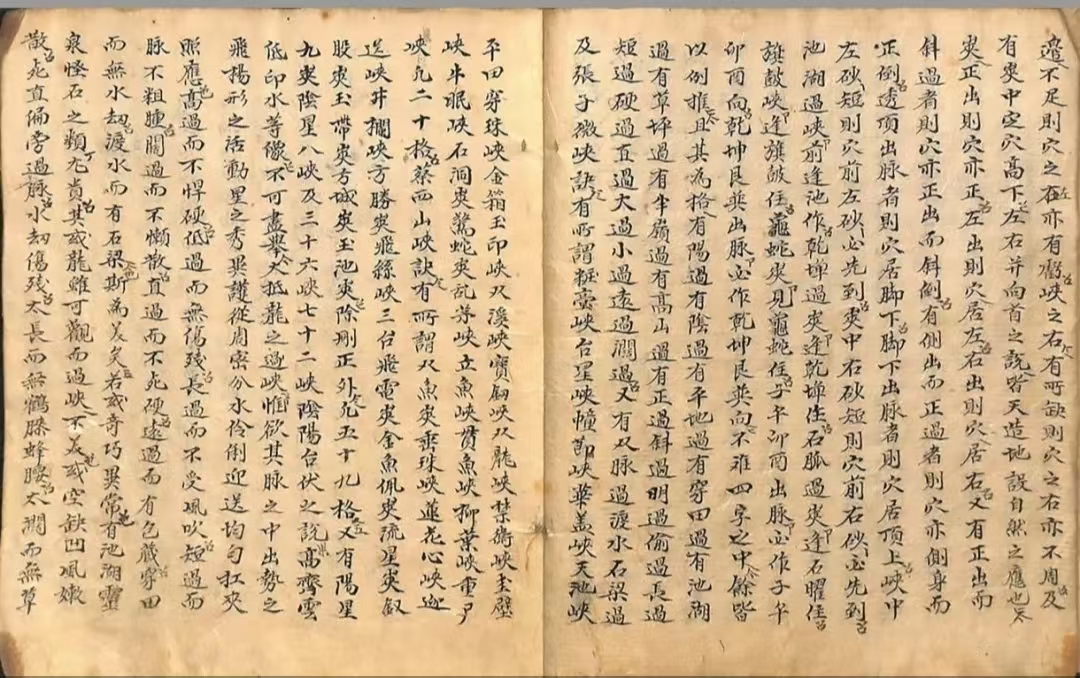 邉不足則穴之左亦有虧峽之右有所缺則穴之右亦不周及
有夾中定穴髙下左右并向首之說皆天造地設自然之應也大
夾正出則穴亦正左出則穴居左右出則穴居右又有正出而
斜過者則穴亦正出而斜倒有側出而正過者則穴亦側身而
正倒透頂出脉者則穴居脚下脚下出脉者則穴居頂上峽中
左砂短則穴前左砂必先到夾中右砂短則穴前右砂必先到
池湖過峽前逢池作乾墠過夾逢乾墠住石脈過夾逢石曜住
旗皷峽逢旗皷住龜蛇夾見龜蛇住子午卯酉出脉必作子午
卯酉向乾坤艮巽出脉必作乾坤艮巽向不雜四字之中餘皆
以例推且其為格有陽過有陰過有平地過有穿田過有池湖
過有草坪過有半嶺過有髙山過有正過斜過明過偷過長過
短過硬過直過大過小過遠過濶過又有双脉過渡水石梁過
及張子微峽訣有所謂粧臺峽台星峽幢節峽華盖峽天池峽
平田穿珠峽金箱玉印峽双溪峽寶劔峽双龍峽禁衛峽圭璧
峽牛眠峽石洞夾驚蛇夾乱芽峽立魚峽貫魚峽柳葉峽重
峽凢二十格蔡西山峽訣有所謂双魚夾乘珠峽蓮花心峽迎
送峽井攔峽方勝夾飛絲峽三台飛電夾金魚佩夾流星夾釵
股夾玉帶夾方城夾玉池夾除刪正外凢五十九格又有陽星
九夾陰星八峽及三十六峽七十二峽陰陽台伏之說髙齊雲
低印水等像不可盡舉大抵龍之過峽惟欲其脉之中出勢之
飛揚形之活動星之秀巽護從周密分水伶俐迎送均勻扛夾
照應髙過而不悍硬低過而無傷殘長過而不受風吹短過而
脉不粗腫濶過而不懶散直過而不死硬遠過而有包藏穿田
而無水刼渡水而有石梁斯為美矣若或奇巧異常有池湖靈
泉怪石之類尤貴其或龍雖可觀而過峽不美或空缺凹風嫩
散死直偏旁過脉水刼傷殘太長而無鶴膝蜂腰太濶而無草